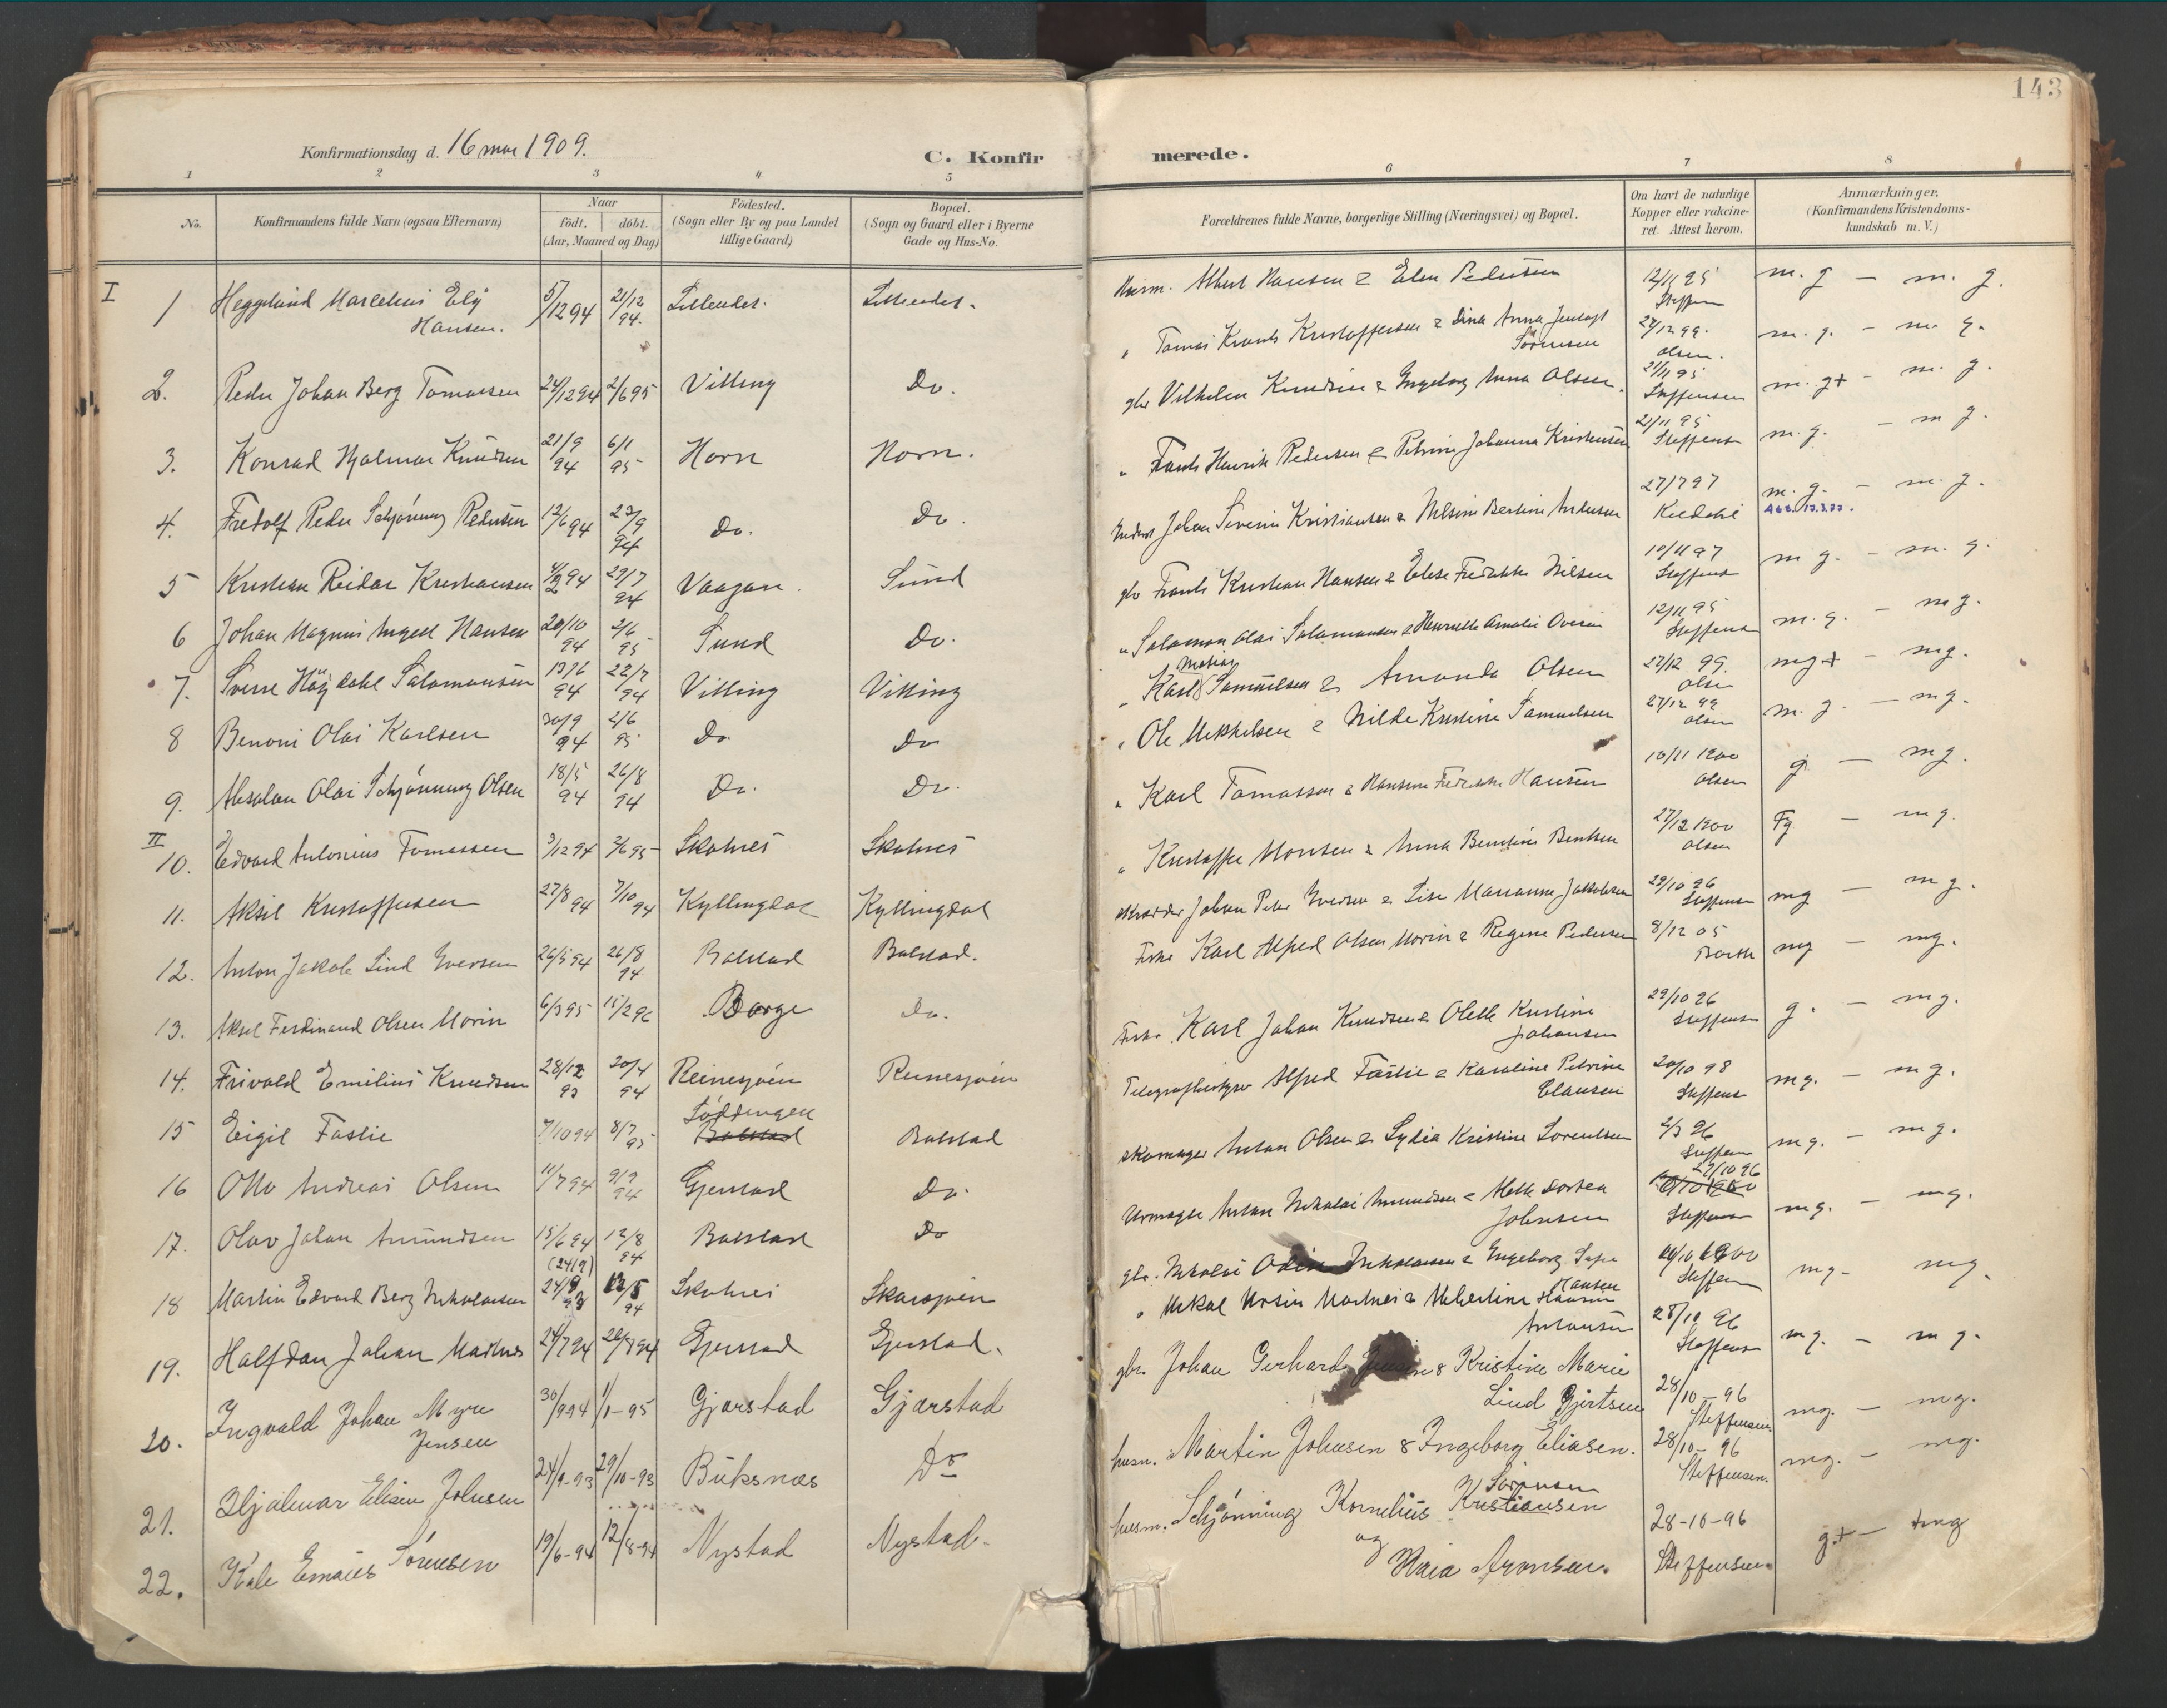 143
Konfirmationsdag d. 16 mai 1909.
C. Konfirmerede.
1 2 3 4 5 6 7 8
No.
Konfirmandens fulde Navn (ogsaa Efternavn)
Naar
födt. döbt.
(Aar, Maaned og Dag)
Födested.
(Sogn eller By og paa Landet
tillige Gaard)
Bopæl.
(Sogn og Gaard eller i Byerne
Gade og Hus-No.
Forældrenes fulde Navne, borgerlige Stilling (Næringsvei) og Bopæl.
Om havt de naturlige
Kopper eller vakcine-
ret. Attest herom.
Anmærkninger.
(Konfirmandens Kristendoms-
kundskab m. V.)
I 1 Heggelund Marcelius Ely Hansen. 5/12 94 21/12 94. Albert Hansen & Elen Pedersen 12/11 95 m. g - m. g.
2. Peder Johan Berg Tomassen 24/12 94 2/6 95 Vitting Do. Kristoffersen & Dina Anna Sörensen 27/12 99. Olsen. m. g. - m. g.
3. Konrad Hjalmar Knudsen 21/9 94 6/1 95 Horn Horn. gbr Vilhelm Knudsen & Ingeborg Anna Olsen. 21/11 95 Steffensen m. g+ - m. g.
4. Fredolf Peder Schjönning Pedersen 12/6 94 23/9 94 Do. Do. " Frants Henrik Pedersen & Petrine Johanna Kristensen 21/11 95 Steffens m. g. - m g.
5 Kristian Reidar Kristiansen 29/7 94 Vaagan. Sund Johan Severin Kristiansen & Nilsine Bertine Andersen 27/7 97 m. g. - m. g.
6 Johan Magnus Hansen 20/10 94 2/6 95 Sund Do. gbr Frants Kristian Hansen & Elise Fredrikke Nilsen 10/11 97 Steffens m g. - m. g.
7. Sverre Höydahl Salamonsen 13/6 94 22/7 94 Vitting Vitting " Salamon Olai Salamonsen & Henriette Amalie 12/11 95 Steffens m. g. - m g.
8 Benoni Olai Karlsen 30/9 94 2/6 95 Do Do " Karl Matias Samuelsen & Amanda Olsen 27/12 99. Olsen mg+ - mg.
9. Absalon Olai Schjönning Olsen 18/5 94 26/8 94 Do. Do. " Ole Mikkelsen & Hilde Kristine Samuelsen 27/12 99 Olsen m. g. - m g.
II 10. Edvard Antonius Tomassen 3/12 94 2/6 95 Skotnes Skotnes " Karl Tomassen & Hansine Fredrikke Hansen 10/11 1900 Olsen g - m g.
11. Aksel Kristoffersen 27/8 94 7/10 94 Kyllingdal Kyllingdal " Kristoffer Monsen & Anna Bentsen 27/12 1900 Olsen Fg - m g.
12. Anton Jakob Lind Iversen 26/5 94 26/8 94 Balstad Balstad. skrædder Johan Peter Iversen & Lise Marianne Jakobsen 29/10 96 Steffens mg - m g.
13. Aksel Ferdinand Olsen Morin 6/3 95 15/2 96 Borge Do. Fisker Karl Alfred Olsen Morin & Regine Pedersen 8/12 05 Barth mg - mg.
14. Frivald Emilius Knudsen 28/12 93 20/4 94 Reinesjöen Reinesjöen Fisker Karl Johan Knudsen & Olette Kristine Johansen 29/10 96 Steffens g. - mg.
15 Eigil Fastie 7/10 94 8/7 95 Lödingen Balstad Balstad Telegrafbestyrer Alfred Fastie & Karoline Petrine Clausen 20/10 98 Steffens mg. - mg.
16 Otto Andreas Olsen 11/7 94 9/9 94 Gjerstad Do. skomager Anton Olsen & Lydia Kristine Lorentsen 2/3 96 Steffens mg. - mg.
17. Olav Johan Amundsen 15/6 94 12/8 94 Balstad Do Urmager Anton Nikolai Amundsen & Mette Dorthea Johnsen 29/10 96 Steffens mg. - mg.
18 Martin Edvard Berg Nikolaisen (24/9) 24/9 93 94 Skotnes Skarsjöen gbr. Nikolai Odin Nikolaisen & Ingeborg Hansen 1900 Steffens mg - mg.
19. Halfdan Johan Martnes 24/7 94 94 Gjerstad Gjerstad. " Antonsen 28/10 96 Steffens mg. - m g.
20. Ingvald Johan Myre Jensen 30/9 94 1/1-95 Gjærstad Gjærstad gbr. Johan Gerhard Jensen & Kristine Marie Lind Gjertsen 28/10-96 Steffensen mg. - mg.
21. Hjalmar Elisen Johnsen 24/9-93 29/10-93 Buksnæs Do husm. Martin Johnsen & Ingeborg Eliasen. 28/10-96 Steffensen. mg. - mg.
22. Kale Emaus Sörensen 19/6-94 12/8-94 Nystad Nystad. husm. Schjönning Kornelius Kristiansen Sörensen
og
Maia Aronsen. 28-10-96 Steffensen g+ - mg